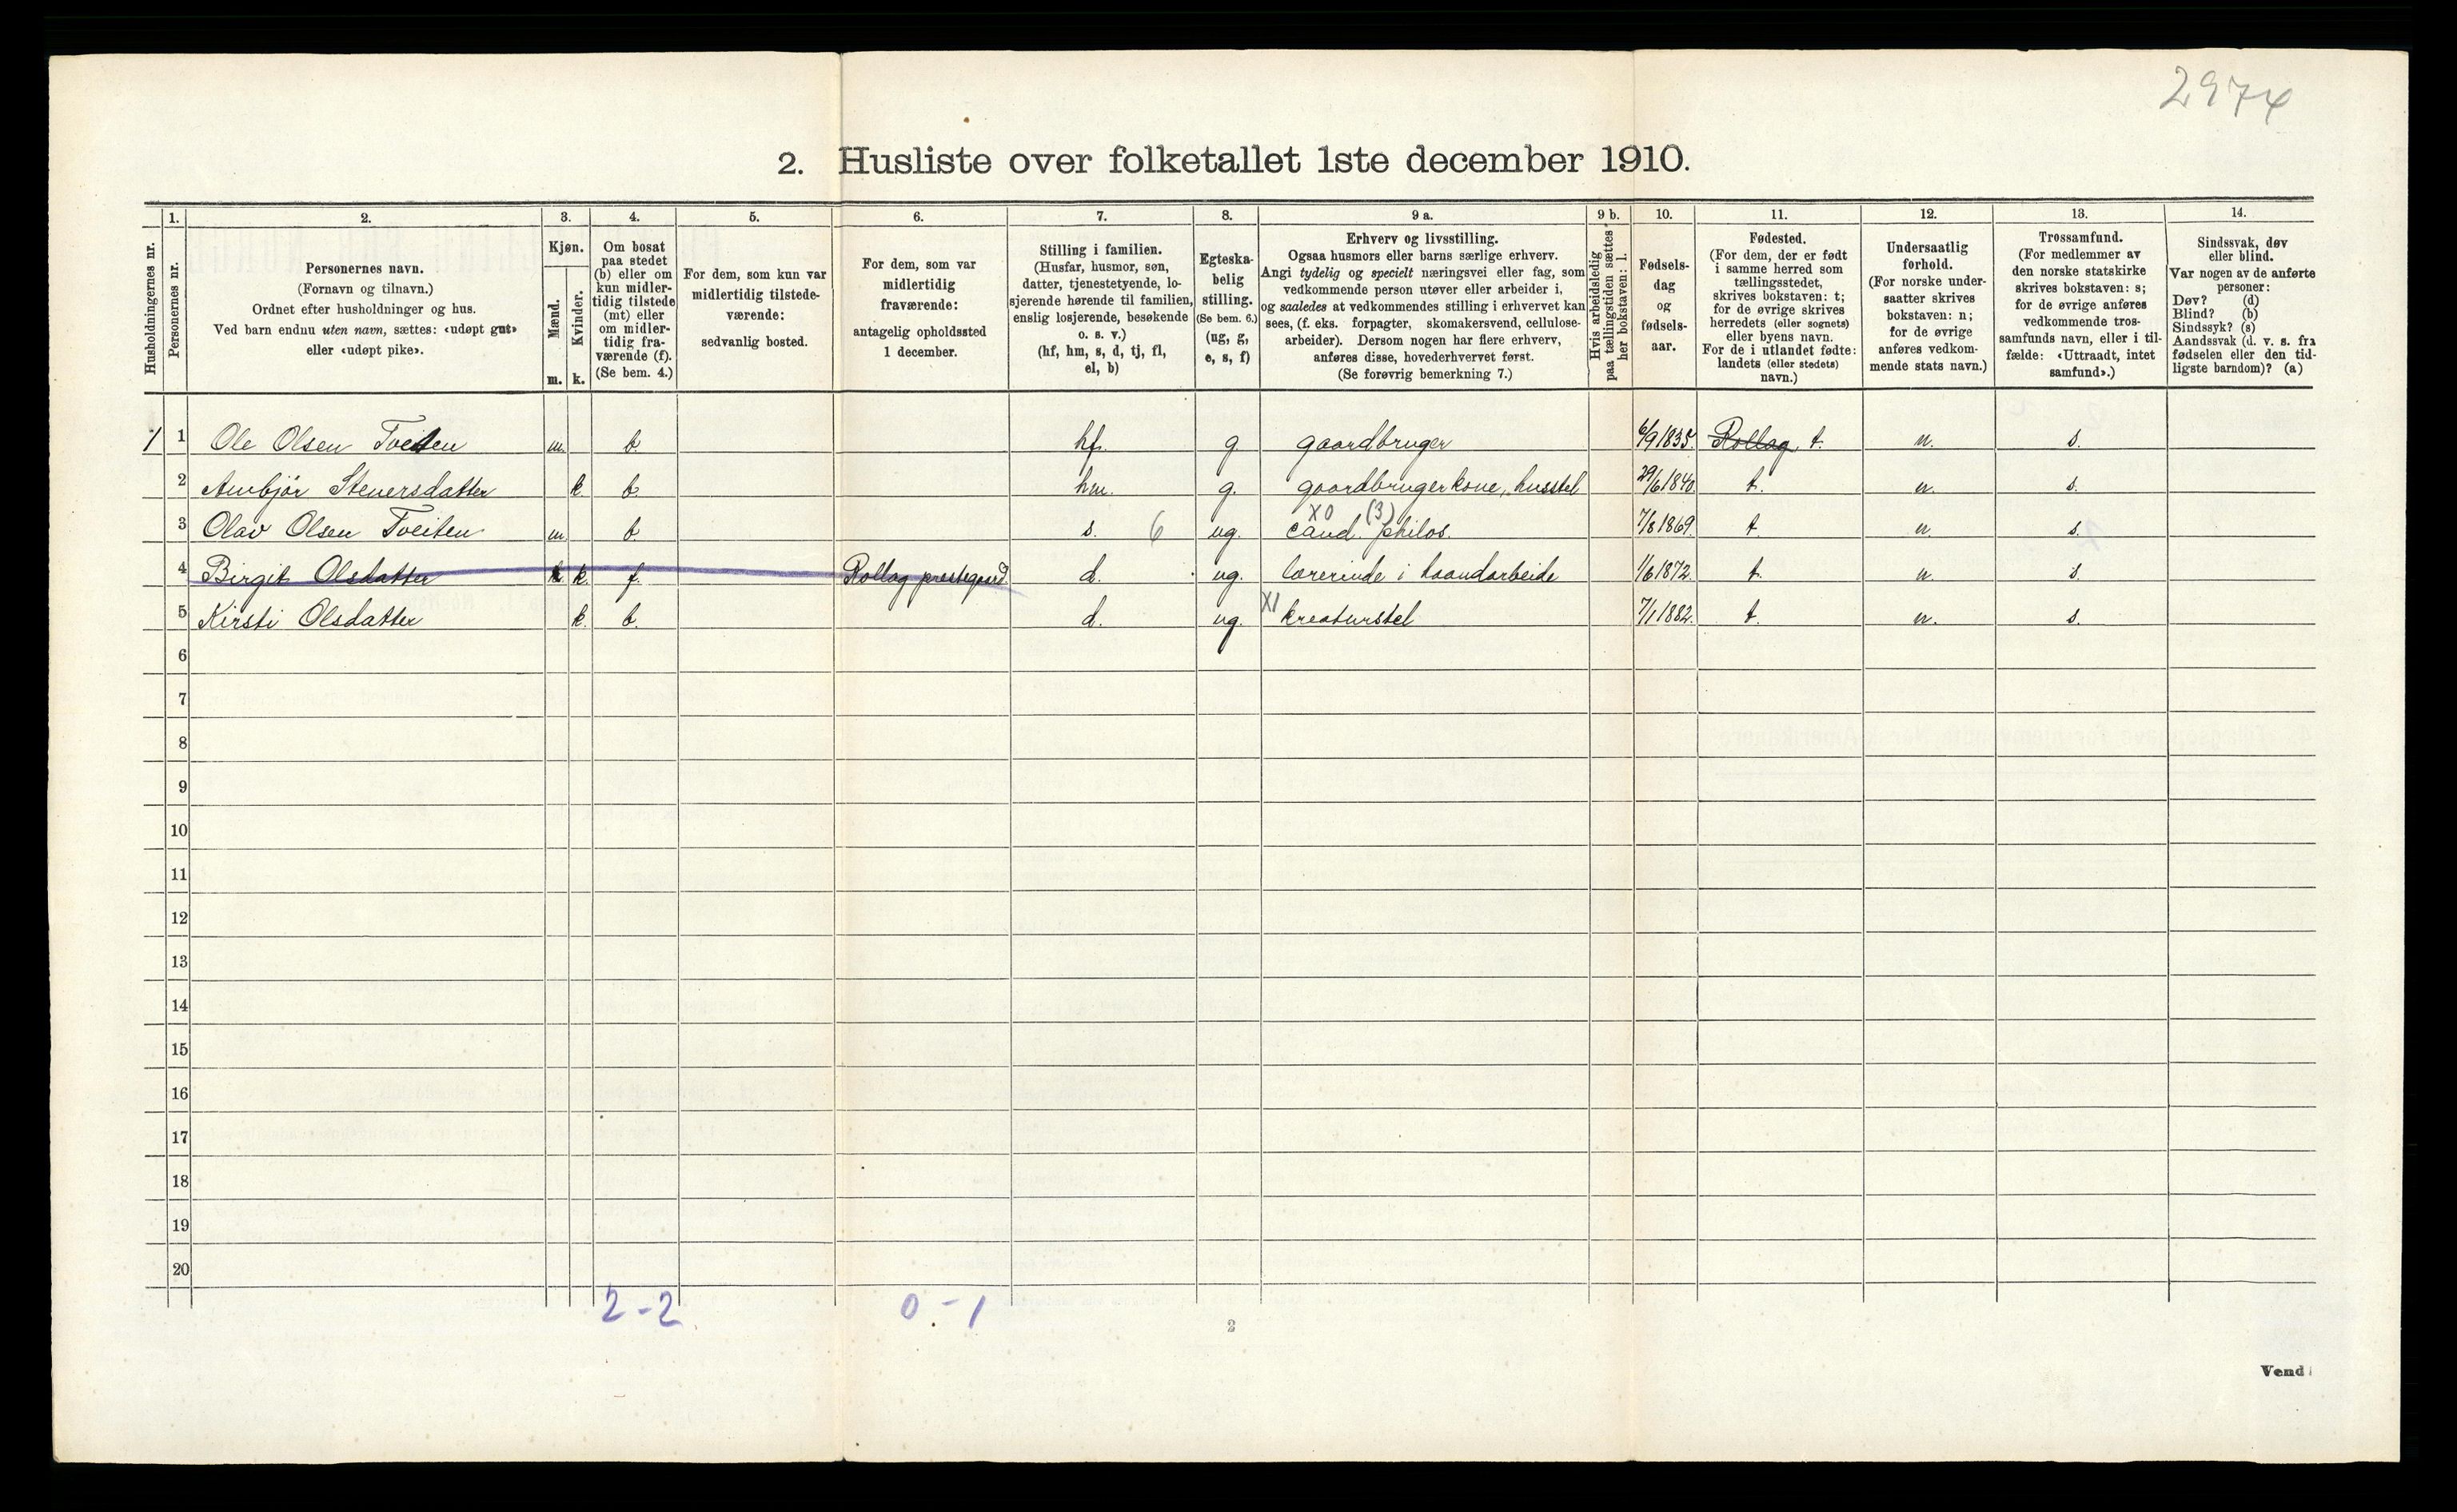 2974
2. Husliste over folketallet 1ste december 1910.
Husholdningernes nr.
1. Personernes nr.
2. Personernes navn.
(Fornavn og tilnavn.)
Ordnet efter husholdninger og hus.
Ved barn endnu uten navn, sættes: «udøpt gut»
eller «udøpt pike».
3. Kjøn.
Mænd. m.
Kvinder. k.
4. Om bosat
paa stedet
(b) eller om
kun midler-
tidig tilstede
(mt) eller
om midler-
tidig fra-
værende (f).
(Se bem. 4.)
5. For dem, som kun var
midlertidig tilstede-
værende:
sedvanlig bosted.
6. For dem, som var
midlertidig
fraværende:
antagelig opholdssted
1 december.
7. Stilling i familien.
(Husfar, husmor, søn,
datter, tjenestetyende, lo-
sjerende hørende til familien,
enslig losjerende, besøkende
o. s. v.)
(hf, hm, s, d, tj, fl,
el, b)
8. Egteska-
belig
stilling.
(Se bem. 6.)
(ug, g,
e, s, f)
9 a. Erhverv og livsstilling.
Ogsaa husmors eller barns særlige erhverv.
Angi tydelig og specielt næringsvei eller fag, som
vedkommende person utøver eller arbeider i,
og saaledes at vedkommendes stilling i erhvervet kan
sees, (f. eks. forpagter, skomakersvend, cellulose-
arbeider). Dersom nogen har flere erhverv,
anføres disse, hovederhvervet først.
(Se forøvrig bemerkning 7.)
9 b. Hvis arbeidsledig
paa tællingstiden sættes
her bokstaven: l.
10. Fødsels-
dag
og
fødsels-
aar.
11. Fødested.
(For dem, der er født
i samme herred som
tællingsstedet,
skrives bokstaven: t;
for de øvrige skrives
herredets (eller sognets)
eller byens navn.
For de i utlandet fødte:
landets (eller stedets)
navn.)
12. Undersaatlig
forhold.
(For norske under-
saatter skrives
bokstaven: n;
for de øvrige
anføres vedkom-
mende stats navn.)
13. Trossamfund.
(For medlemmer av
den norske statskirke
skrives bokstaven: s;
for de øvrige anføres
vedkommende tros-
samfunds navn, eller i til-
fælde: «Uttraadt, intet
samfund».)
14. Sindssvak, døv
eller blind.
Var nogen av de anførte
personer:
Døv? (d)
Blind? (b)
Sindssyk? (s)
Aandssvak (d. v. s. fra
fødselen eller den tid-
ligste barndom)? (a)
1 1 Ole Olsen Tveiten m. b. hf. g. gaardbruger 6/9 1835. Rollag t. n. s.
2 Anbjör Steversdatter k. b. hm. g. gaardbrugerkone, husstel 29/6 1840. t. n. s.
X0 (3)
3 Olav Olsen Tveiten m. b. s. 6 ug. cand. philos. 7/8 1869. t. n. s.
4 Birgit Olsdatter k. f. Rollag prestegaard d. ug. lærerinde i haandarbeide 1/6 1872. t. n. s.
5 Kirsti Olsdatter k. b. d. ug. X1 kreaturstel 7/1 1882. t. n. s.
6
7
8
9
10
11
12
13
14
15
16
17
18
19
20
2-2 0-1
2
Vend